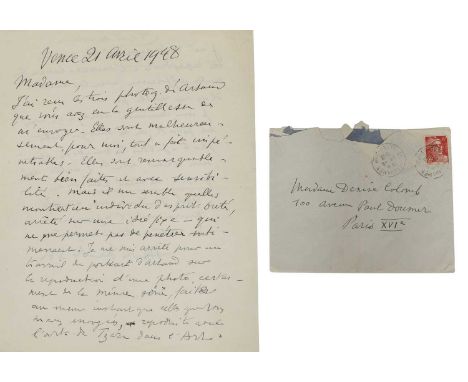 Vence 21 Avril 1948
Madame,
J'ai reçu les trois photog. d'Artaud
que vous avez eu la gentillesse de
m'envoyer. Elles sont malheureu-
sement, pour moi, tout à fait impé-
nétrables. Elles sont remarquable-
ment bien faites et avec sensibi-
lité : mais il me semble qu'elles
montrent un individu d'esprit
arrêté sur une idée fixe — qui
ne me permet pas de pénétrer inti-
mement. Je me suis arrêté pour un
travail de portrait d'Artaud sur
la reproduction d'une photo, certai-
nement de la même série, faite
au même instant que celles que vous
m'avez envoyées, reproduite avec
l'article de Tzara dans
Madame Denise Colomb
100 avenue Paul Doumer
Paris XVIe